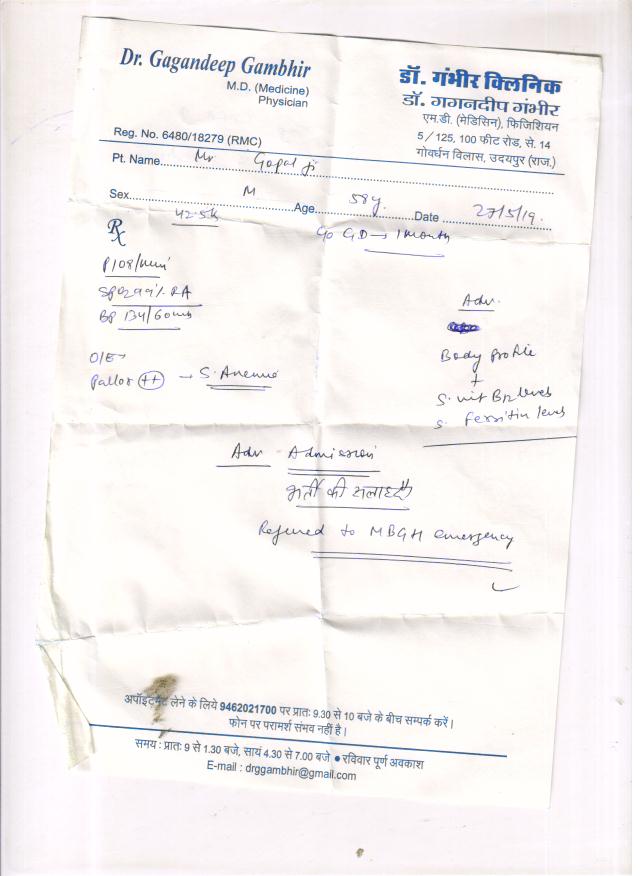 Dr. Gagandeep Gambhir
M.D. (Medicine)
Physician
Reg. No. 6480/18279 (RMC)
डॉ. गंभीर क्लिनिक
डॉ. गगनदीप गंभीर
एम.डी. (मेडिसिन), फिजिशियन
5 / 125, 100 फीट रोड, से. 14
गोवर्धन विलास, उदयपुर (राज.)
Pt. Name Mr Gopal ji
Sex M Age 58y. Date 27/5/19.
42.5k
Rx
c/o GD → 1 month
P 108/min
SpO2 99% RA
BP 134/60
O/E →
Pallor ++ → S. Anemia
Adv.
Body profile
+
S. vit B12 levels
S. Ferritin levels
Adv Admission
भर्ती की सलाह दी
Referred to MBGH emergency
अपॉइंटमेंट लेने के लिये 9462021700 पर प्रातः 9.30 से 10 बजे के बीच सम्पर्क करें।
फोन पर परामर्श संभव नहीं है।
समय : प्रातः 9 से 1.30 बजे, सायं 4.30 से 7.00 बजे ● रविवार पूर्ण अवकाश
E-mail : drggambhir@gmail.com